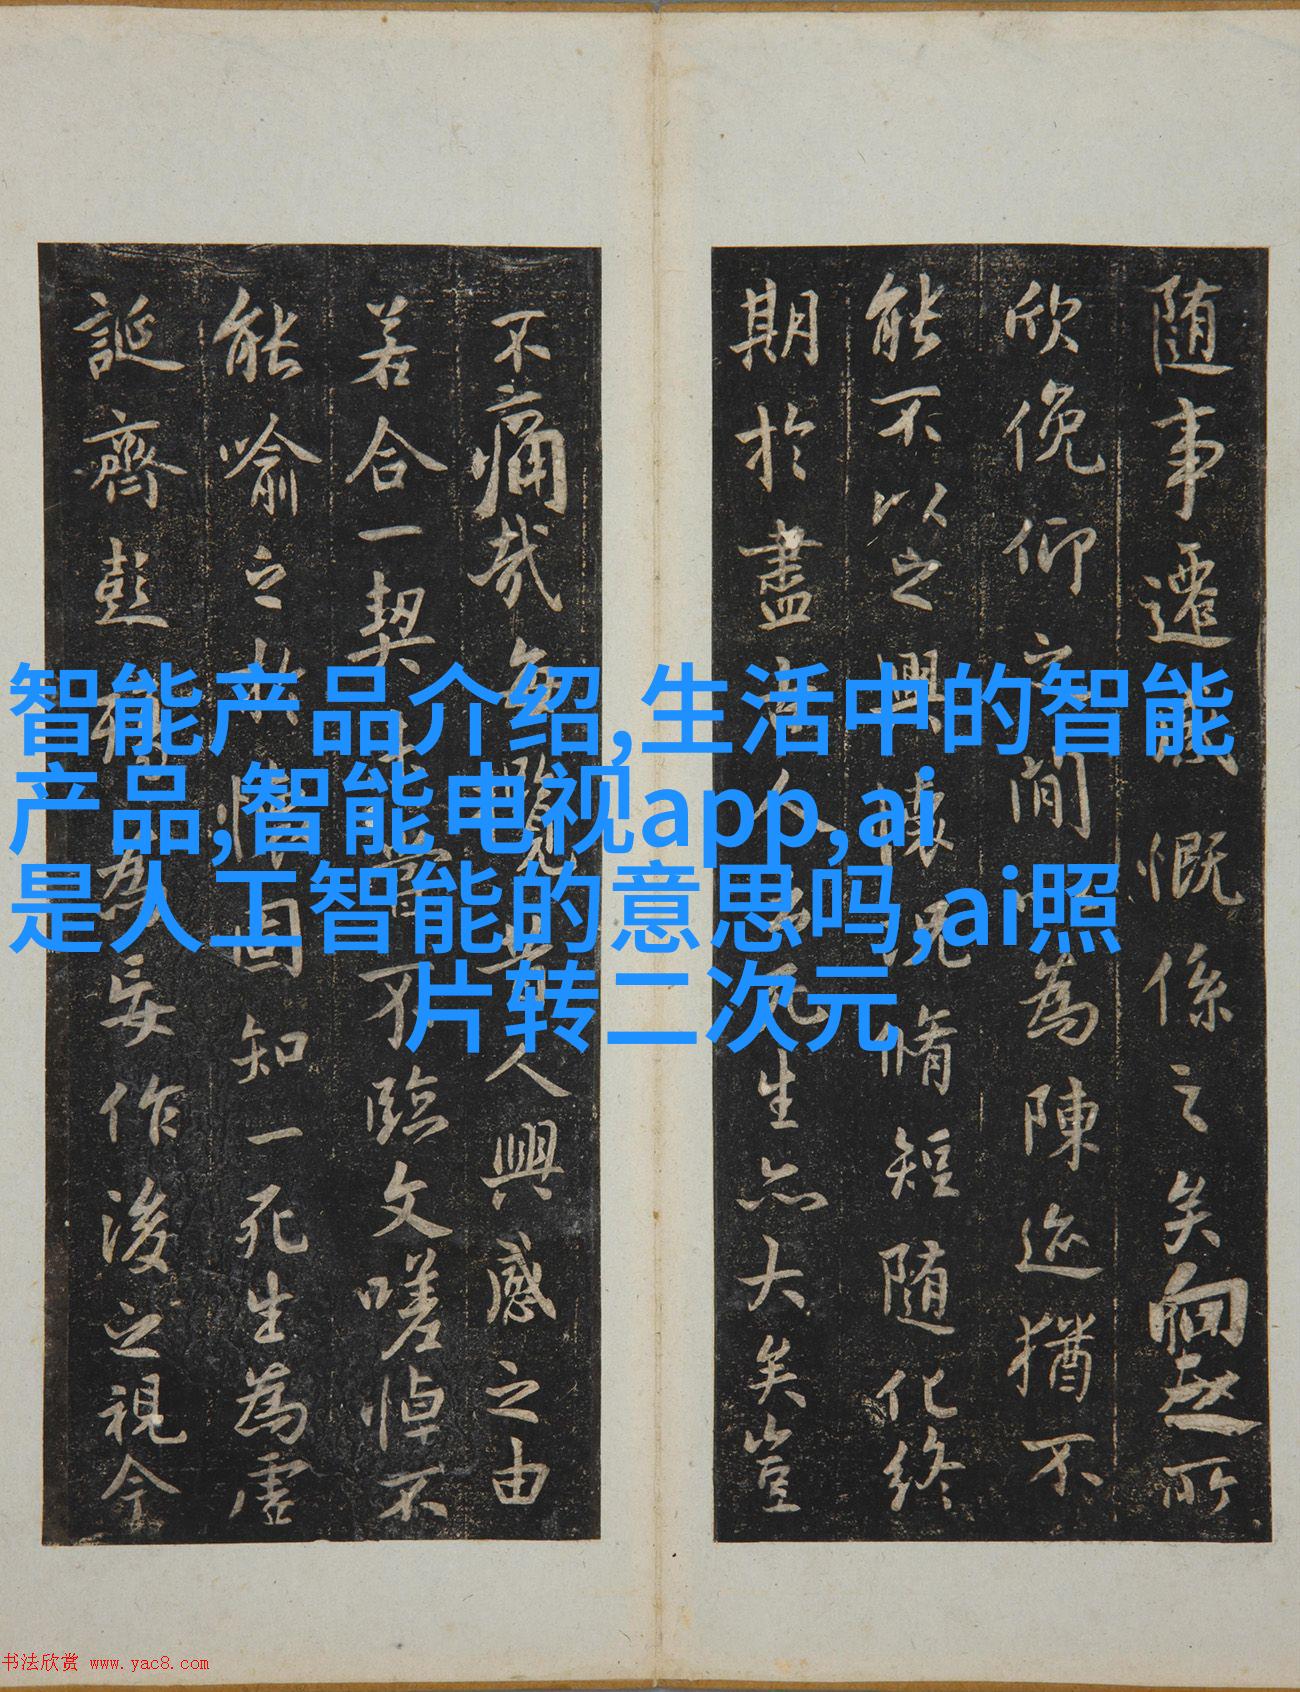 智能产品介绍,生活中的智能
产品,智能电视app,ai
是人工智能的意思吗,ai照
片转二次元
随事遷感慨係之矣向之所
欣俛仰之閒以為陳迹猶不
能不以之興懷況脩短随化終
期於盡古人云死生亦大矣豈
不痛哉每攬昔人興感之由
若合一契未嘗不臨文嗟悼不
能喻之於懷固知一死生為虛
誕齊彭殤為妄作後之視今
书法欣赏 www.yac8.com